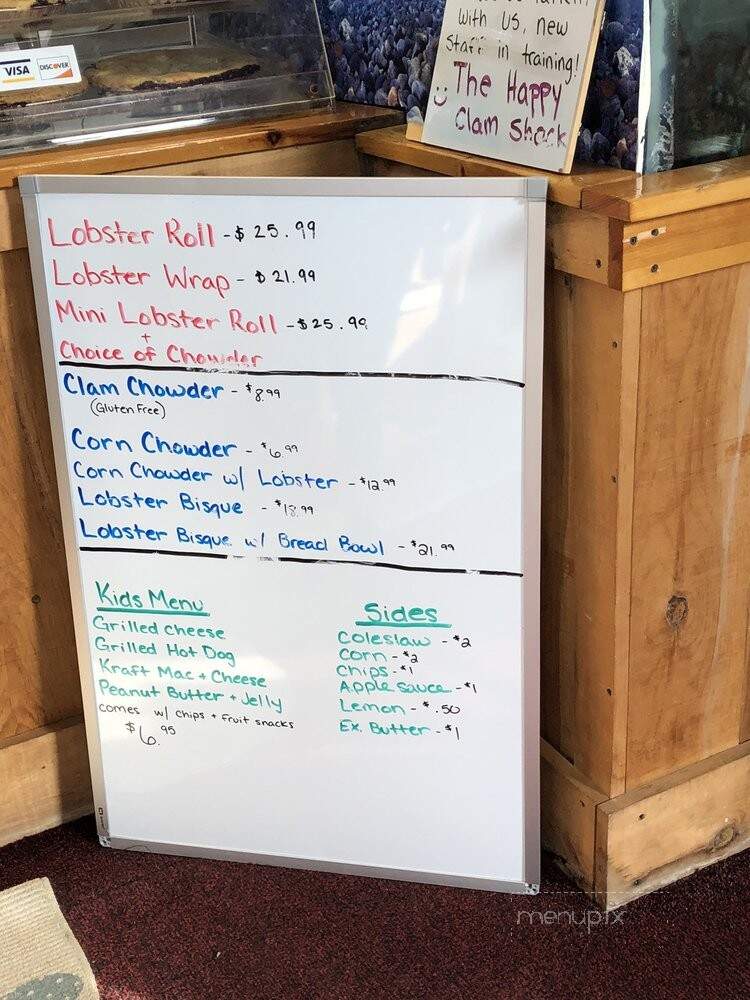 VISA
DISCOVER
with us, new
Staff in training!
The Happy
Clam Shack
Lobster Roll - $25.99
Lobster Wrap - $21.99
Mini Lobster Roll - $25.99
+
Choice of Chowder
Clam Chowder - $8.99
(Gluten Free)
Corn Chowder - $6.99
Corn Chowder w/ Lobster - $12.99
Lobster Bisque - $18.99
Lobster Bisque w/ Bread Bowl - $21.99
Kids Menu
Grilled cheese
Grilled Hot Dog
Kraft Mac + Cheese
Peanut Butter + Jelly
comes w/ chips + fruit snacks
$6.95
Sides
Coleslaw - $2
Corn - $2
Chips - $1
Applesauce - $1
Lemon - $.50
Ex. Butter - $1
menupix